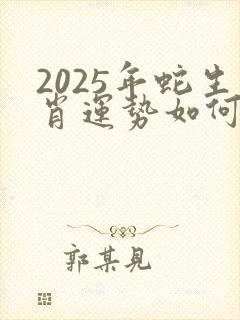 2025年蛇生
肖運勢如何
郭某見